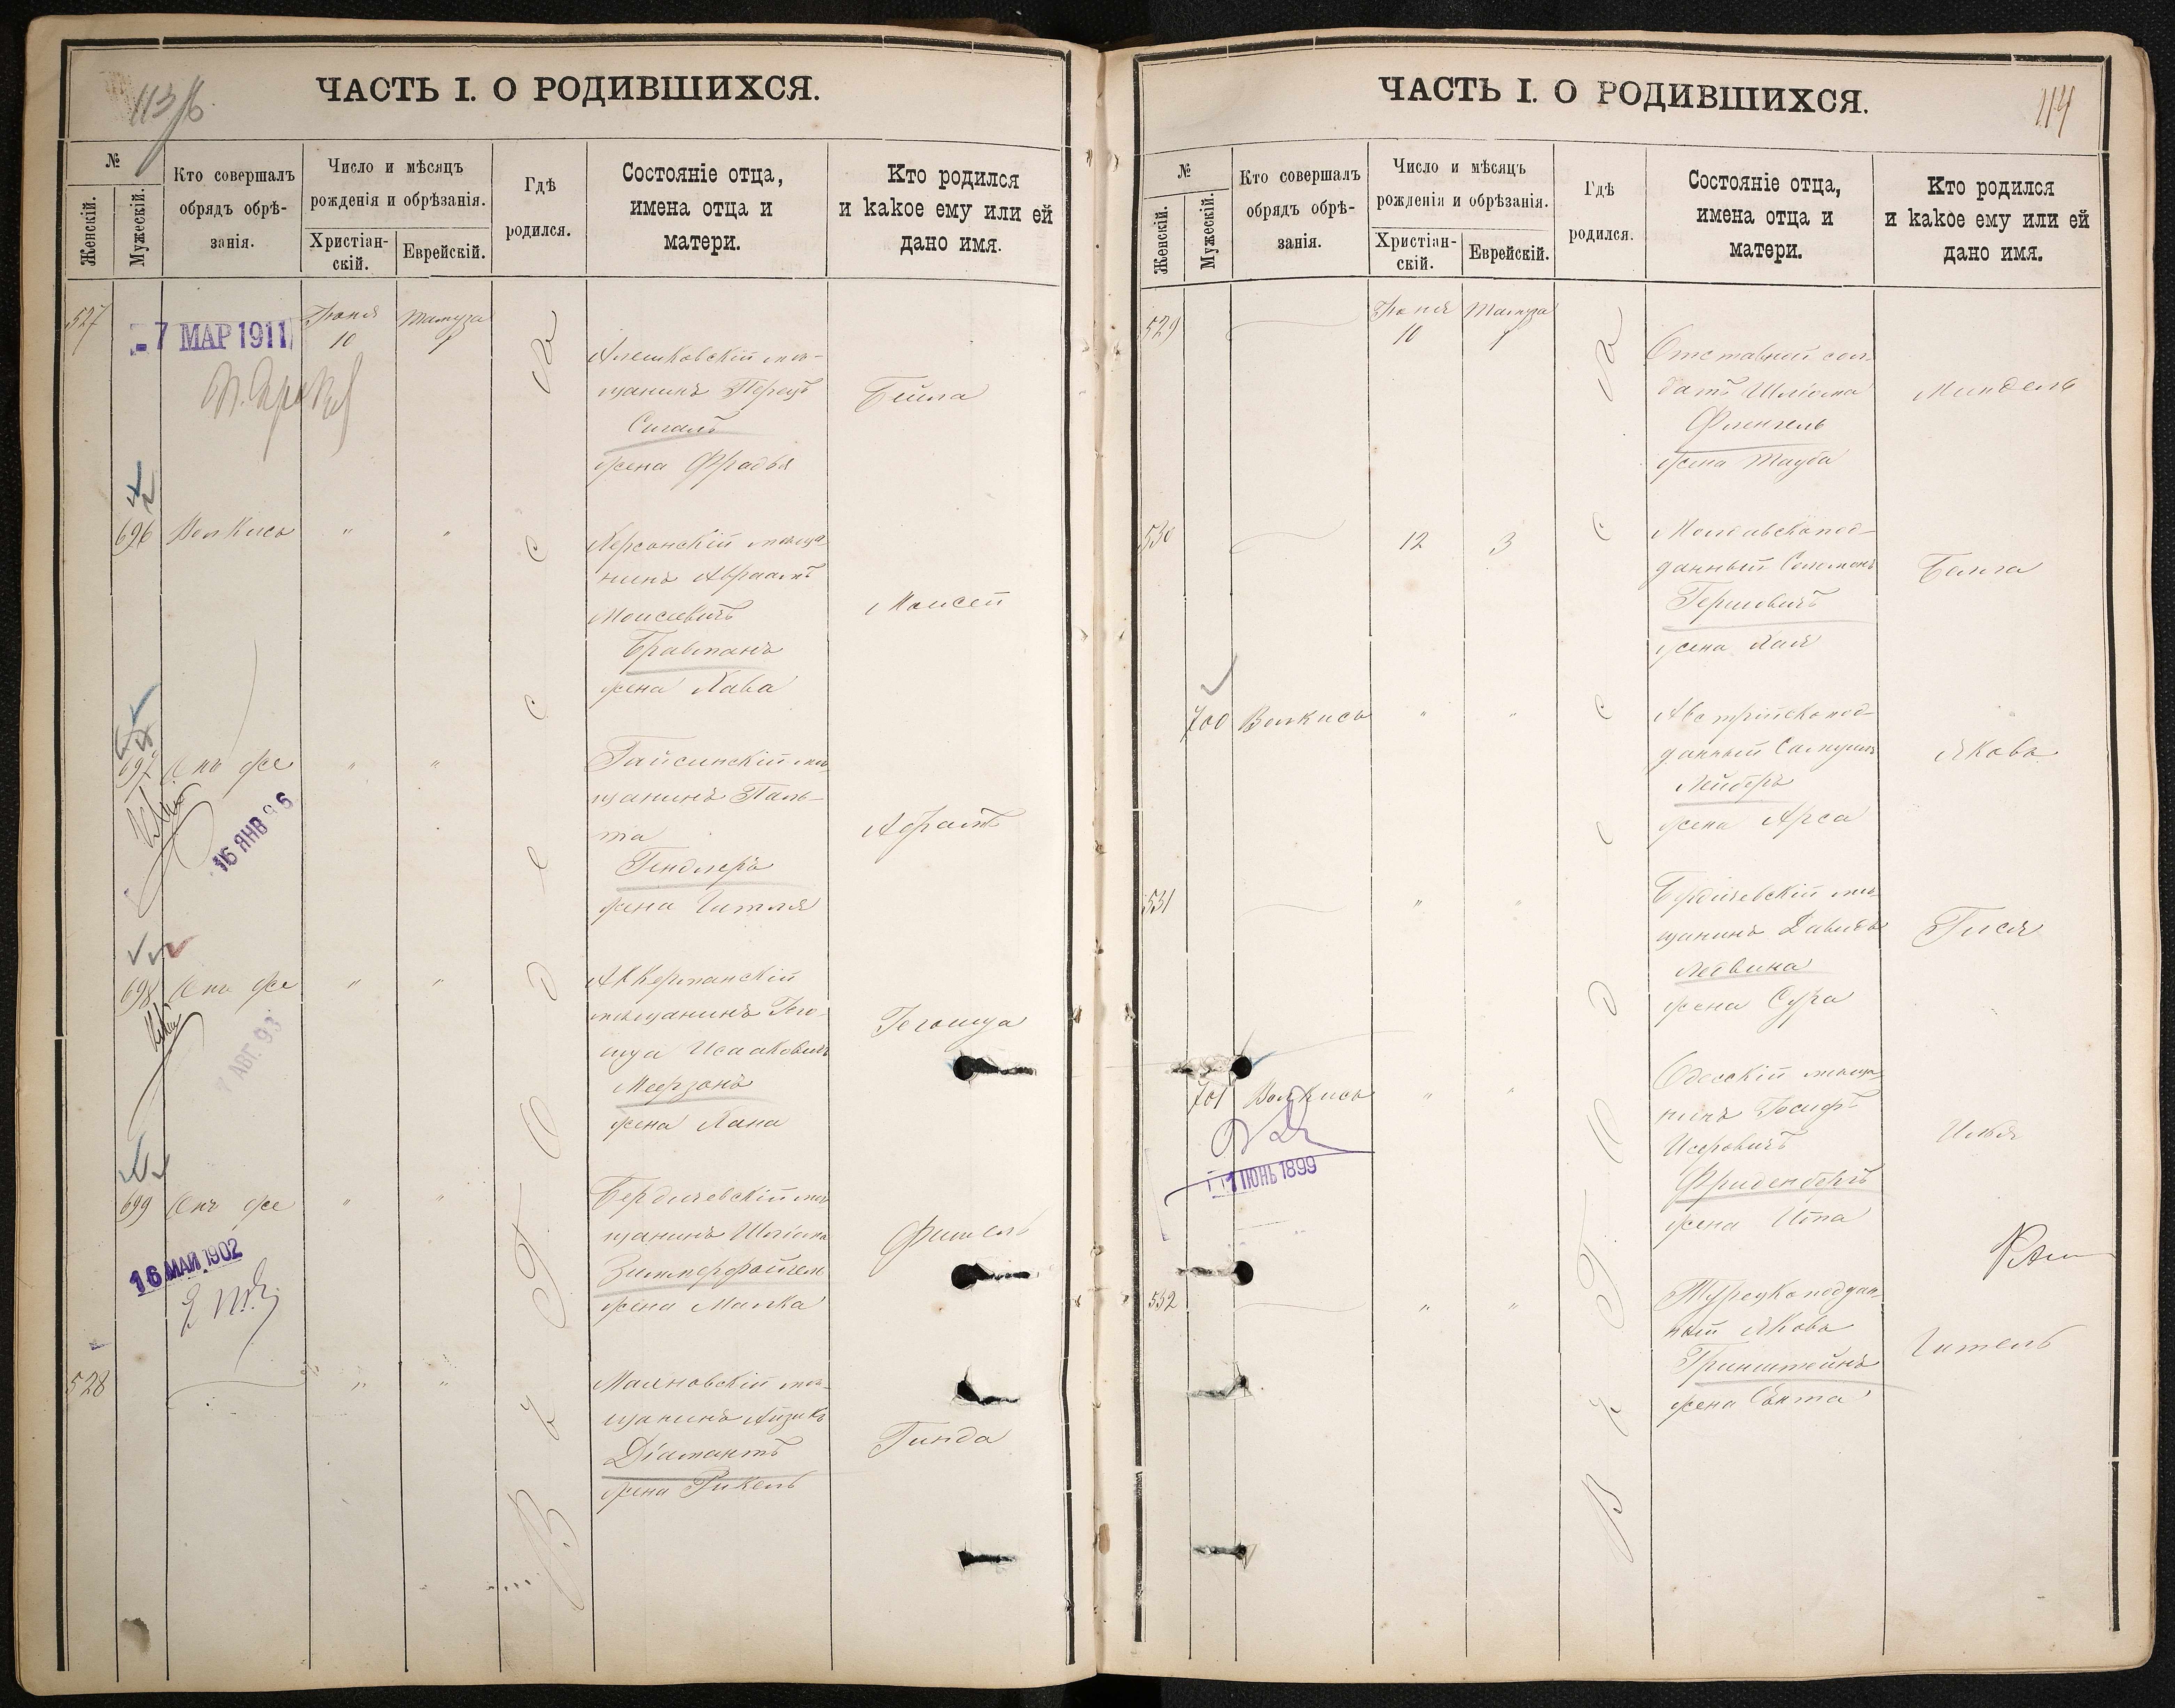 113 об.
ЧАСТЬ I. О РОДИВШИХСЯ.
№
Женскій.
Мужескій.
Кто совершалъ
обрядъ обрѣ-
занія.
Число и мѣсяцъ
рожденія и обрѣзанія.
Христіан-
скій.
Еврейскій.
Гдѣ
родился.
Состояніе отца,
имена отца и
матери.
Кто родился
и какое ему или ей
дано имя.
Въ Одессѣ
527
7 МАР 1911
Іюня
10
Тамуза
1
Алешковскій мѣ-
щанинъ Перецъ
Сигалъ
жена Фрадья
Бейла
696
Волкисъ
"
"
Херсонскій мѣща-
нинъ Авраамъ
Моисеевичъ
Бравманъ
жена Хава
Моисей
697
Онъ же
"
"
16 ЯНВ 96
Гайсинскій мѣ-
щанинъ Паль-
та
Гендлеръ
жена Гитля
Абрамъ
698
Онъ же
"
"
АВГ. 93
Аккерманскій
мѣщанинъ Гего-
шуа Исааковичъ
Меерзонъ
жена Хана
Гегошуа
699
Онъ же
"
"
16 МАЙ 1902
Бердичевскій мѣ-
щанинъ Шліома
Зиммерфойгель
жена Малка
Фишель
528
"
"
Маяновскій мѣ-
щанинъ Айзикъ
Діамантъ
жена Рикель
Гинда
114
ЧАСТЬ I. О РОДИВШИХСЯ.
№
Женскій.
Мужескій.
Кто совершалъ
обрядъ обрѣ-
занія.
Число и мѣсяцъ
рожденія и обрѣзанія.
Христіан-
скій.
Еврейскій.
Гдѣ
родился.
Состояніе отца,
имена отца и
матери.
Кто родился
и какое ему или ей
дано имя.
529
Іюня
10
Тамуза
1
Отставной сол-
датъ Шліома
Фленгель
жена Тауба
Миндель
530
12
3
Молдавскопод-
данный Соломонъ
Гершовичъ
жена Хая
Бейла
700
Волкисъ
"
"
Австрійскопод-
данный Самуилъ
Лейберъ
жена Арса
Яковъ
531
"
"
Бердичевскій мѣ-
щанинъ Давидъ
Ледвина
жена Сура
Гися
701
Волкисъ
"
"
1 ІЮНЬ 1899
Одесскій мѣща-
нинъ Іосифъ
Исеровичъ
Фриденбергъ
жена Ита
Илья
532
"
"
Турецкоподдан-
ный Яковъ
Гринштейнъ
жена Сѣкта
Гитель